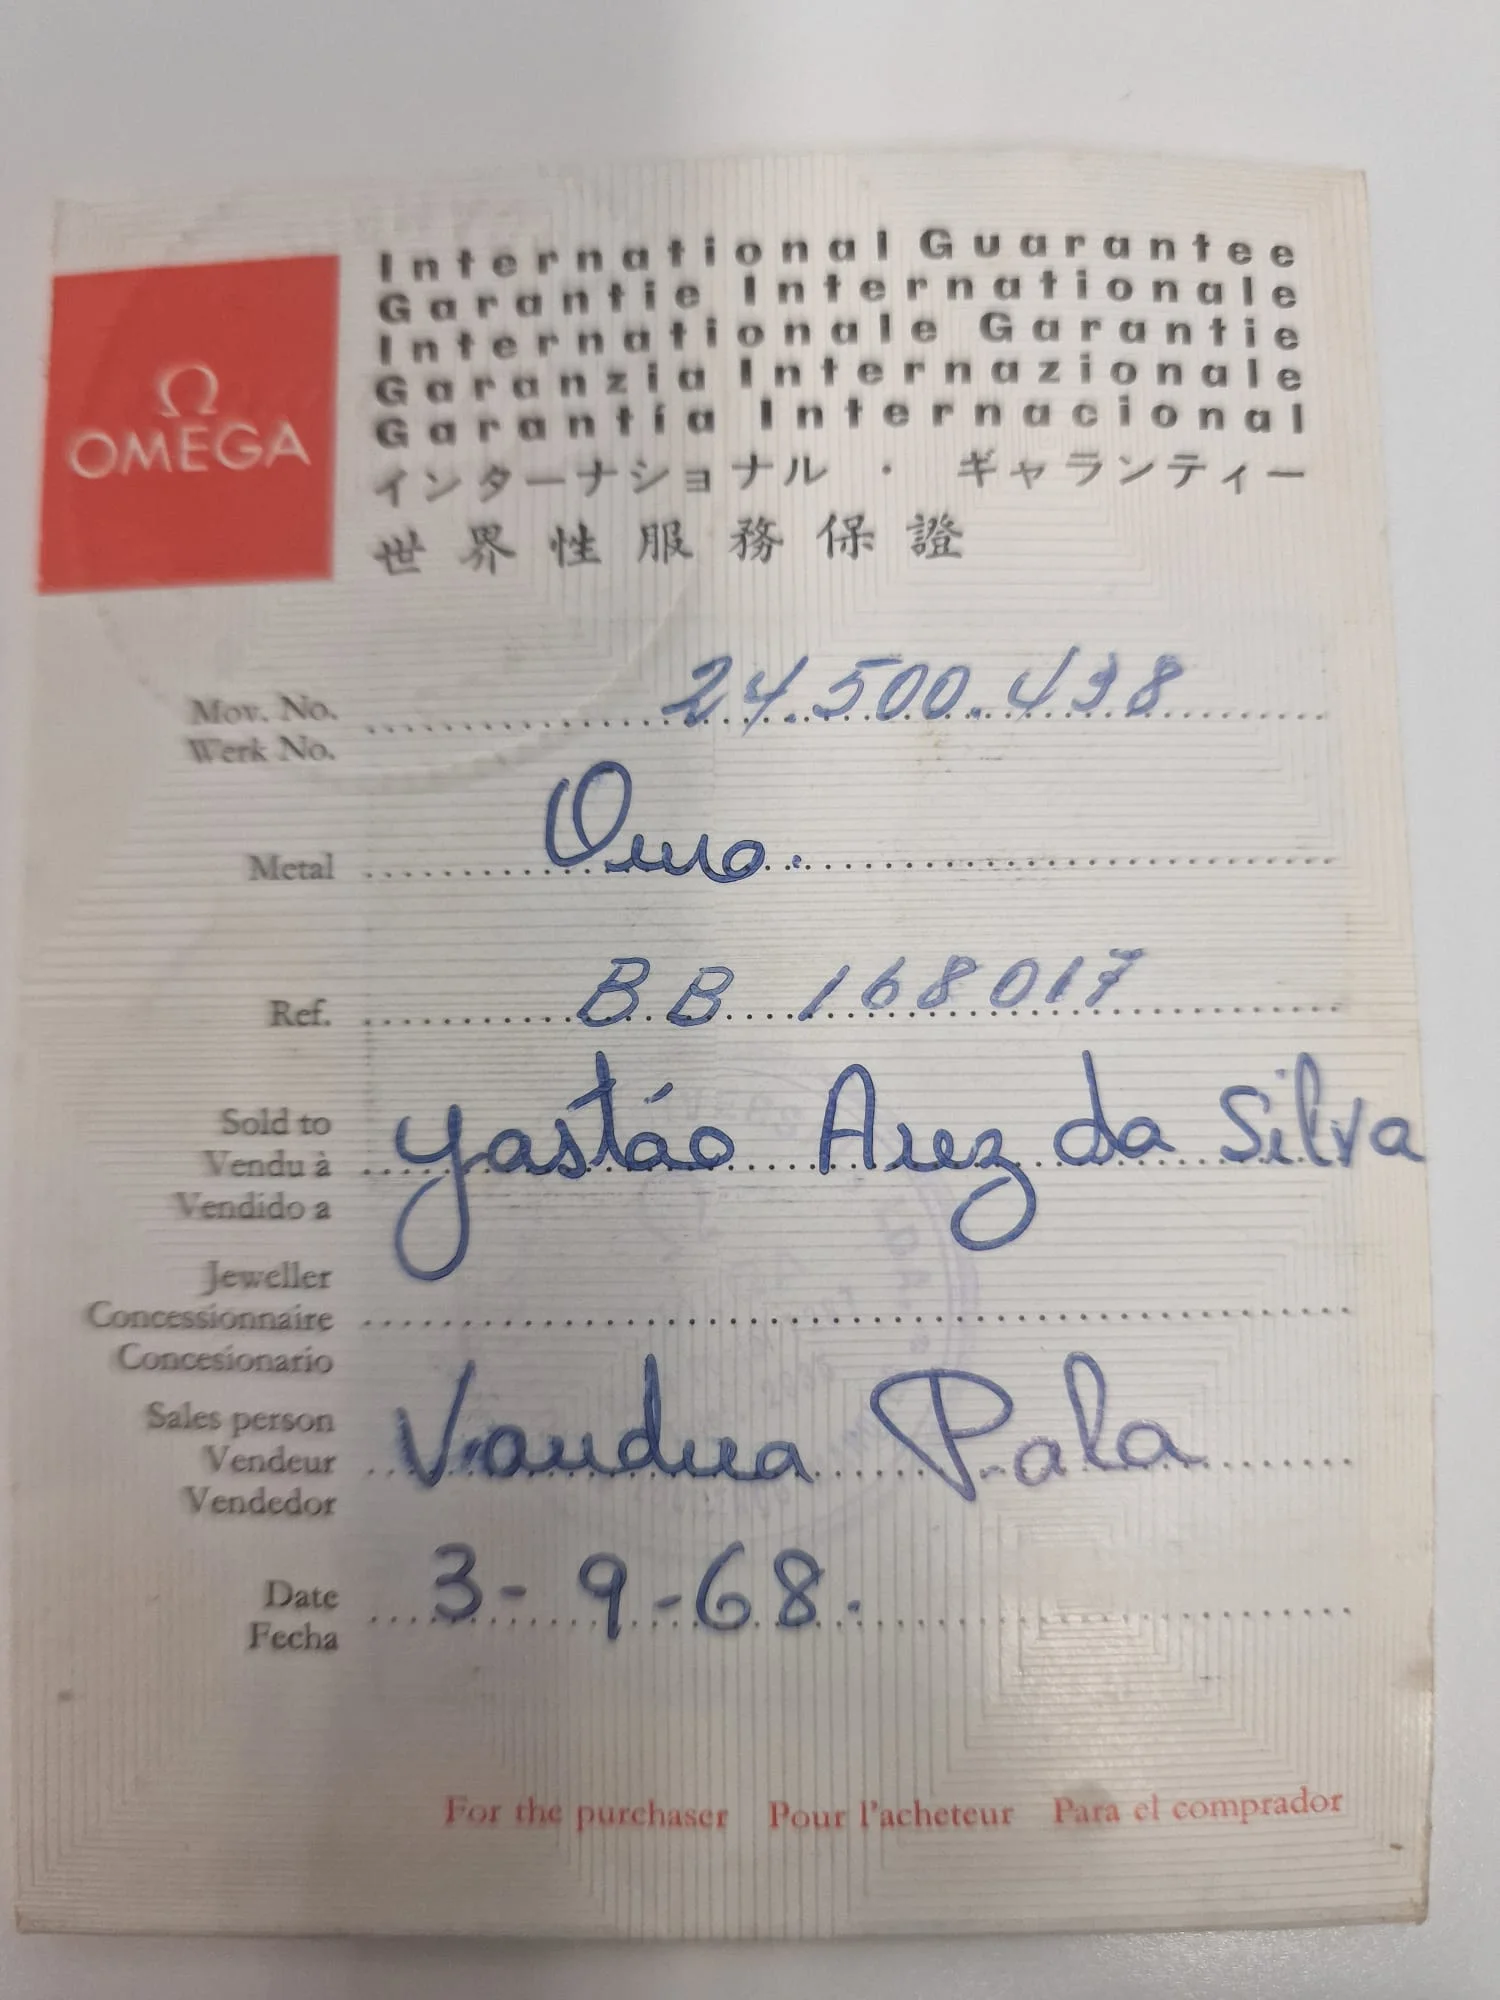 Ω
OMEGA
International Guarantee
Garantie Internationale
Internationale Garantie
Garanzia Internazionale
Garantía Internacional
インターナショナル・ギャランティー
世界性服務保證
Mov. No. 24.500.438
Werk No.
Metal Ouro.
Ref. BB 168017
Sold to
Vendu à Gastão Arez da Silva
Vendido a
Jeweller
Concessionnaire
Concesionario
Sales person
Vendeur Pala
Vendedor
Date 3-9-68.
Fecha
For the purchaser Pour l'acheteur Para el comprador